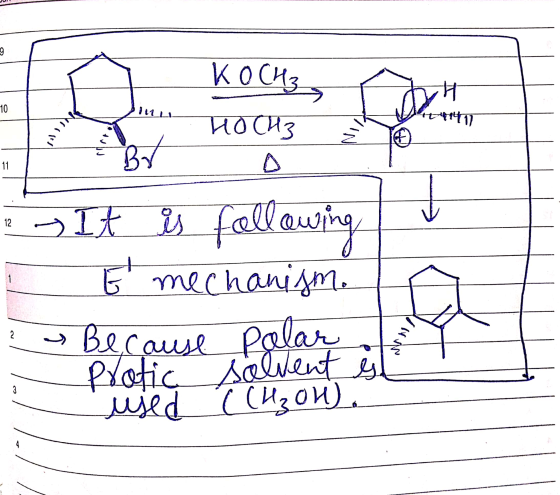 9
10
11
12
1
2
3
4
KOCH3
HOCH3
Δ
Br
H
⊕
→ It is following
E' mechanism.
→ Because Polar
Protic solvent is
used (CH3OH).